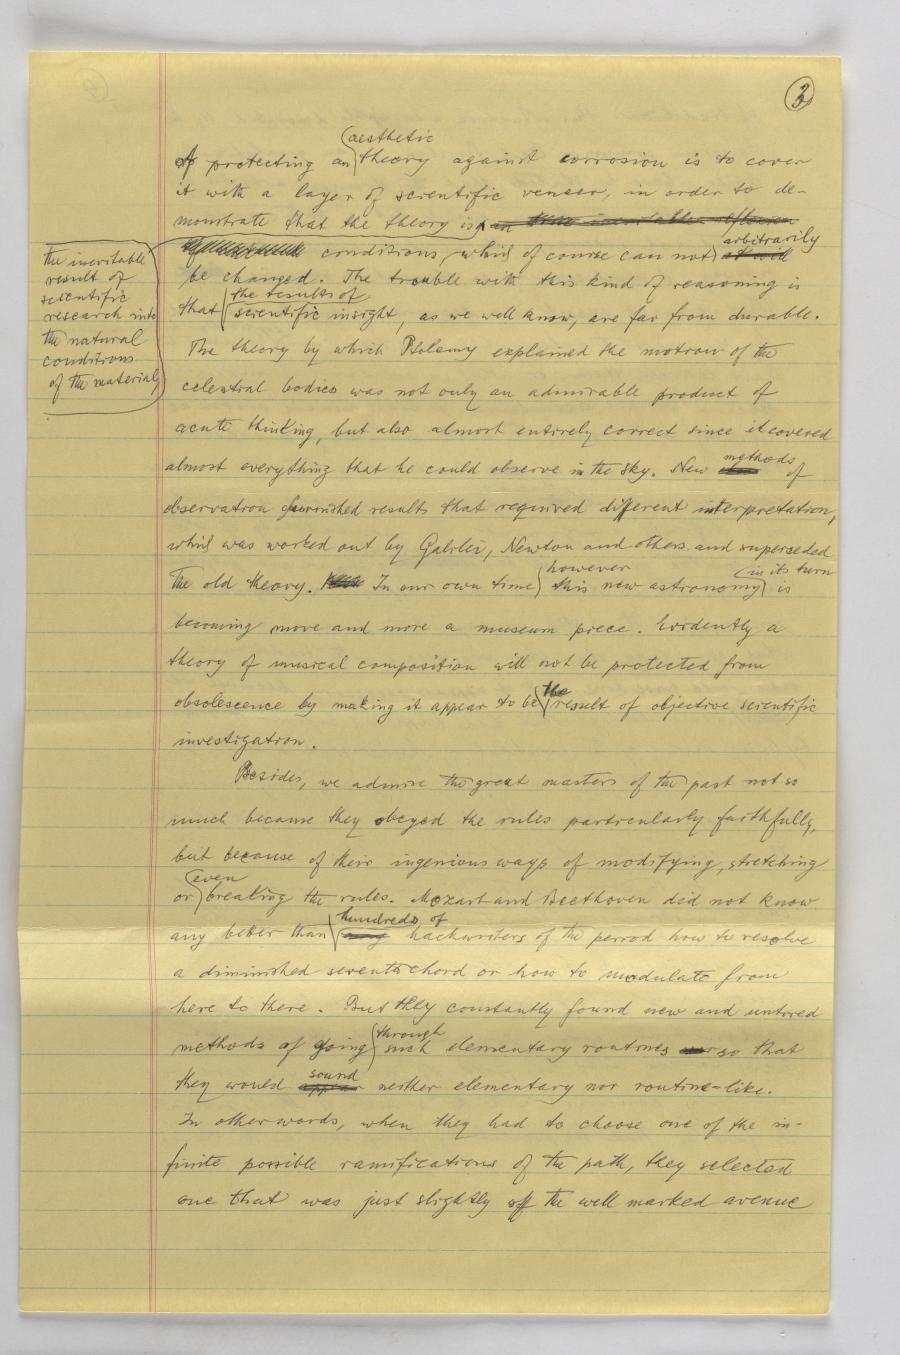 3
aesthetic
of protecting an theory against corrosion is to cover
it with a layer of scientific veneer, in order to de-
monstrate that the theory is an inevitable
arbitrarily
conditions, which of course can not at will
the inevitable
result of
scientific
research into
the natural
conditions
of the material,
be changed. The trouble with this kind of reasoning is
the results of
that scientific insight, as we well know, are far from durable.
The theory by which Ptolemy explained the motion of the
celestial bodies was not only an admirable product of
acute thinking, but also almost entirely correct since it covered
methods
almost everything that he could observe in the sky. New of
observation furnished results that required different interpretation,
which was worked out by Galilei, Newton and others and superseded
however in its turn
the old theory. In our own time this new astronomy is
becoming more and more a museum piece. Evidently a
theory of musical composition will not be protected from
the
obsolescence by making it appear to be result of objective scientific
investigation.
Besides, we admire the great masters of the past not so
much because they obeyed the rules particularly faithfully,
but because of their ingenious ways of modifying, stretching
even
or breaking the rules. Mozart and Beethoven did not know
hundreds of
any better than many hackwriters of the period how to resolve
a diminished seventh chord or how to modulate from
here to there. But they constantly found new and untried
through
methods of going such elementary routines so that
sound
they would appear neither elementary nor routine-like.
In other words, when they had to choose one of the in-
finite possible ramifications of the path, they selected
one that was just slightly off the well marked avenue